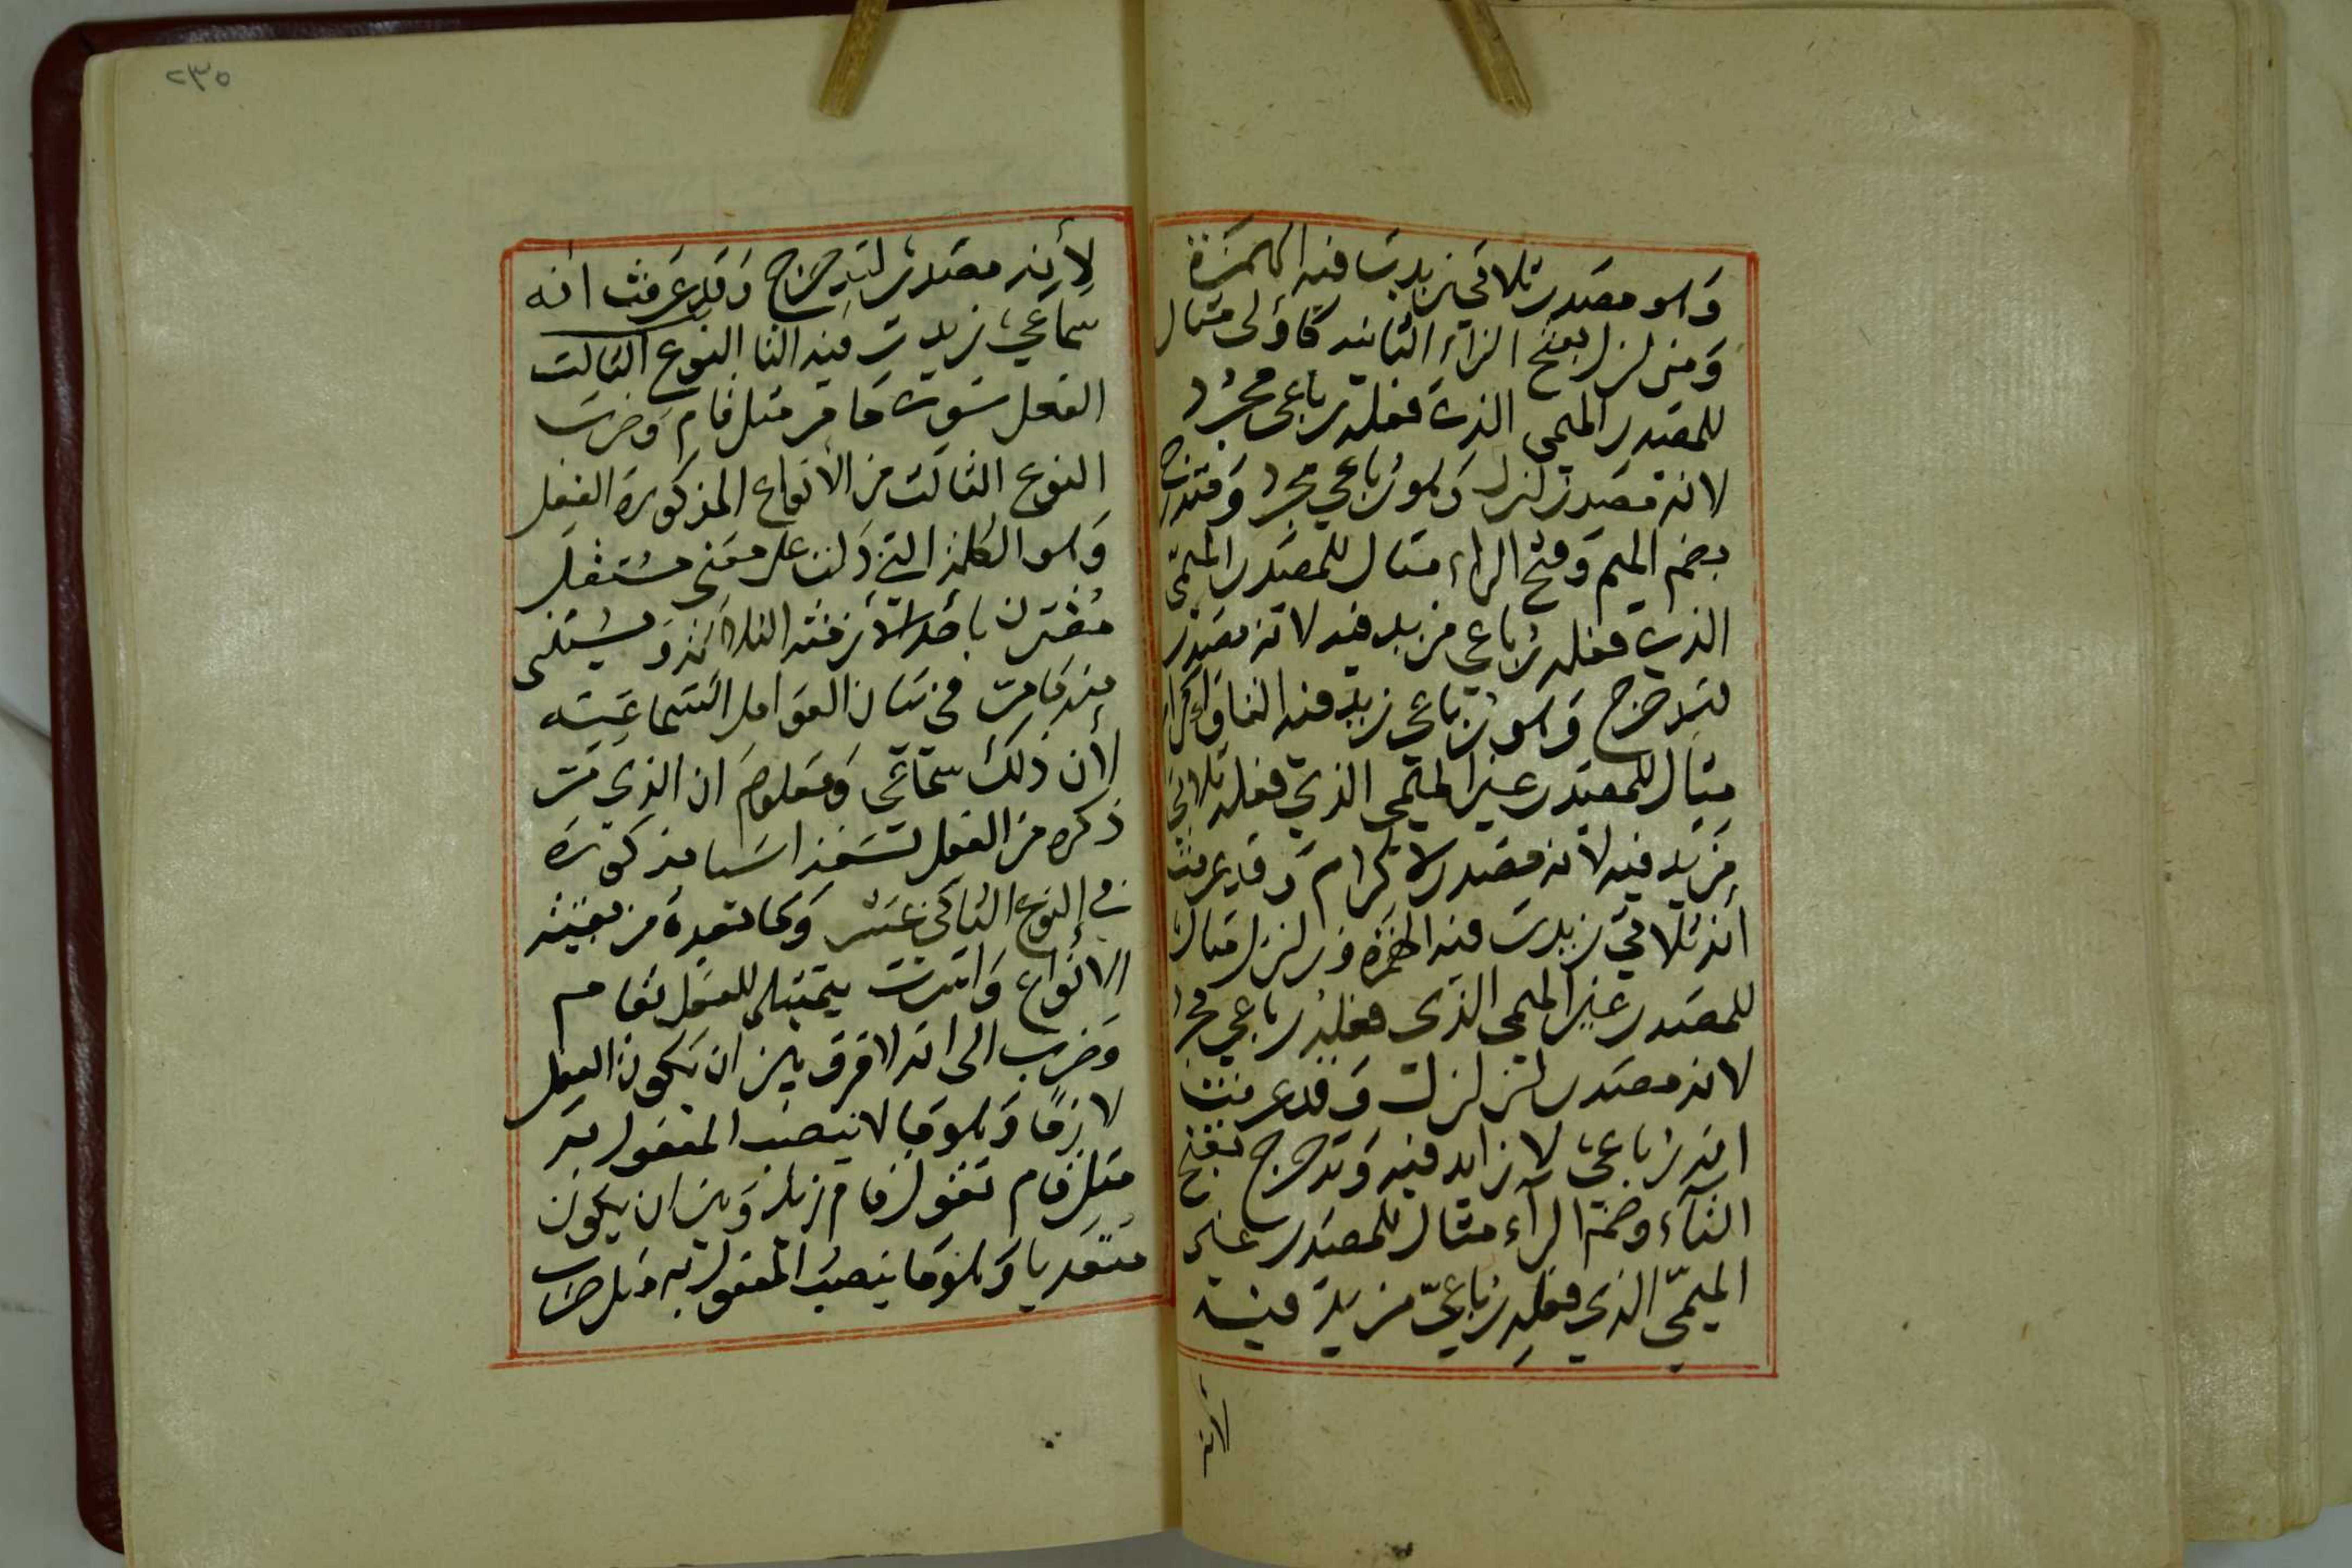 وهو مصدر ثلاثي زيدت فيه الهمزة
ومزلزل بفتح الزاء الثانيه كأولى مثال
للمصدر الميمي الذي فعله رباعي مجرد
لانه مصدر زلزل وهو رباعي مجرد ومتدحرج
بضم الميم وفتح الراء مثال للمصدر الميمي
الذي فعله رباعي مزيد فيه لانه مصدر
لتدحرج وهو رباعي زيد فيه التا واكرام
مثال للمصدر غير الميمي الذي فعله ثلاثي
مزيد فيه لانه مصدر لاكرام وقد عرفت
انه ثلاثي زيدت فيه الهمزة وزلزل مثال
للمصدر غير الميمي الذي فعله رباعي مجرد
لانه مصدر لزلزلت وقد عرفت
انه رباعي لا زايد فيه وتدحرج بفتح
التآء وضمة الرآء مثال للمصدر غير
الميمي الذي فعله رباعي مزيد فيه
لانه
٢٣٥
لأنه مصدر لتدحرج وقد عرفت انه
سماعي زيدت فيه التا النوع الثالث
الفعل سوى ما مر مثل قام وضرب
النوع الثالث من الأنواع المذكورة الفعل
وهو الكلمة التي دلت على معنى مستقل
مقترن بأحد الأزمنة الثلاثة ويستثنى
منه ما مر في بيان العوامل السماعية
لأن ذلك سماعي ومعلوم ان الذي مر
ذكره من الفعل تسعة اشيا مذكورة
في النوع الثاني عشر وما تعدة من بقية
الأنواع واشرت بتمثيلي للفعل بقام
وضرب الى انه لا فرق بين ان يكون الفعل
لازما وهو ما لا ينصب المفعول به
مثل قام تقول قام زيد وبين ان يكون
متعديا وهو ما ينصب المفعول به مثل ضرب